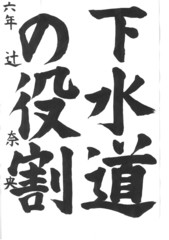 下水道
の役割
六年 辻 奈央